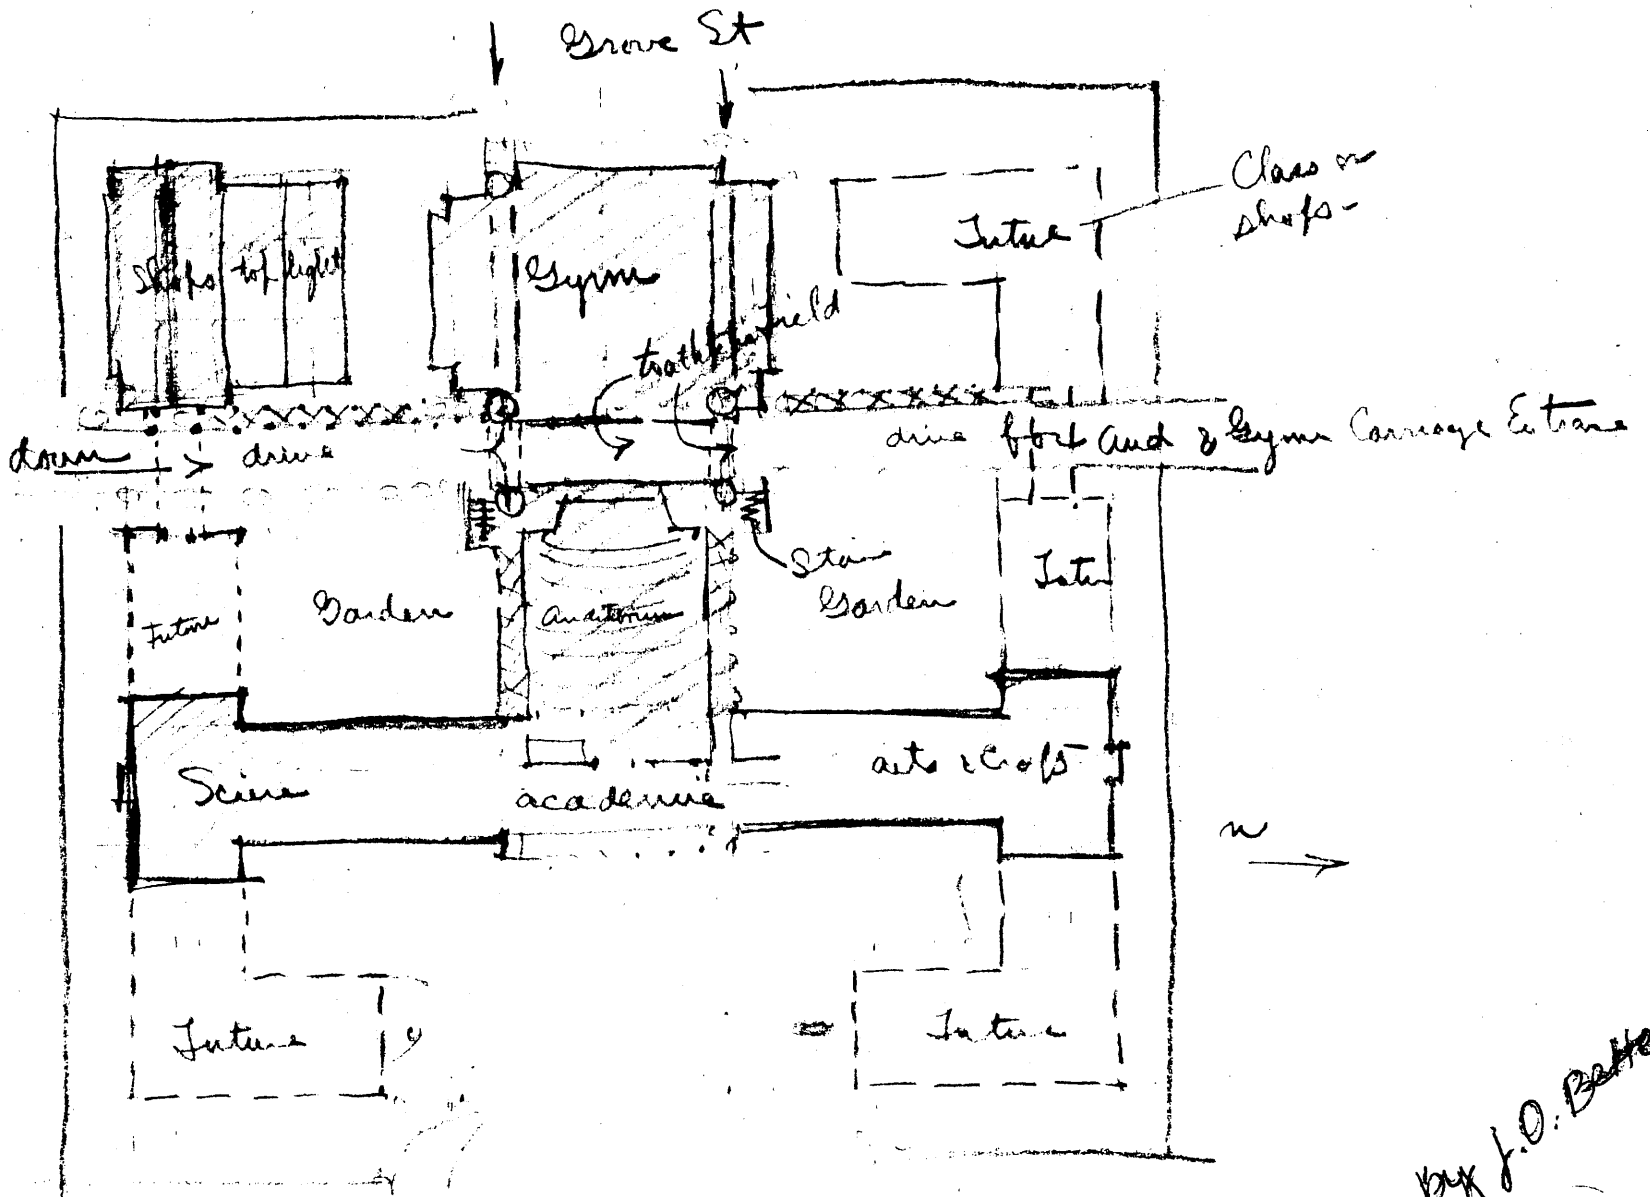 Grove St
Class or
shops-
Future
Shops top light
Gym
to athletic field
down
drive
drive for Aud & Gym Carriage Entrance
Stair
Garden
Garden
Auditorium
Future
Future
Science
academic
arts & Crafts
n
Future
Future
by J.O. Bette